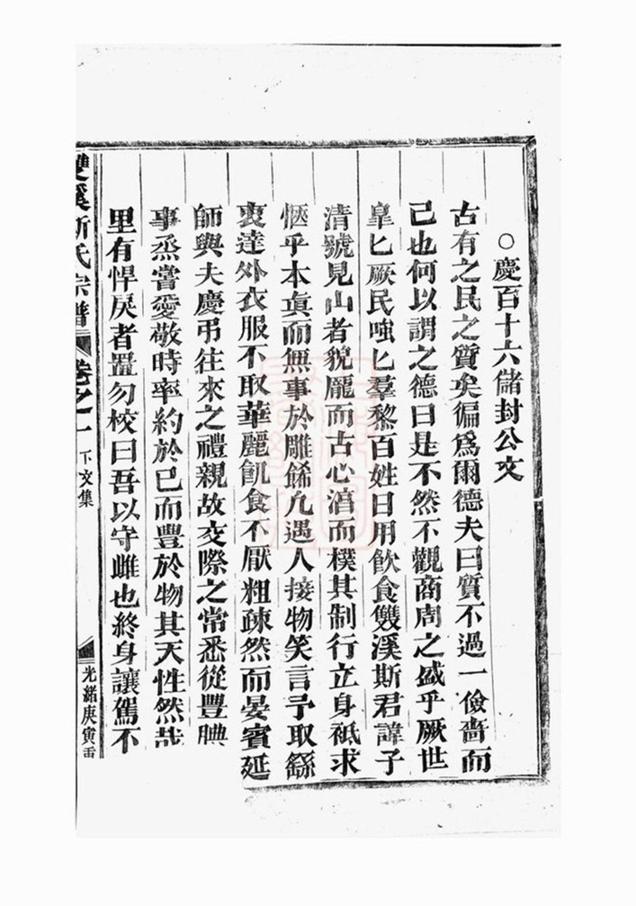 ○慶百十六儲封公文
古有之民之質矣徧爲爾德夫曰質不過一儉嗇而
己也何以謂之德曰是不然不觀商周之盛乎厥世
皐匕厥民嗤匕羣黎百姓日用飲食雙溪斯君諱子
清號見山者貌龐而古心湻而樸其制行立身祗求
愜乎本眞而無事於雕餙凢遇人接物笑言予取繇
衷達外衣服不取華麗飢食不厭粗疎然而晏賓延
師與夫慶弔往來之禮親故交際之常悉從豐腆
事烝嘗愛敬時率約於已而豐於物其天性然哉
里有悍戾者置勿校曰吾以守雌也終身讓駕不
雙溪斯氏宗譜 卷之一 下文集 光緒庚寅重